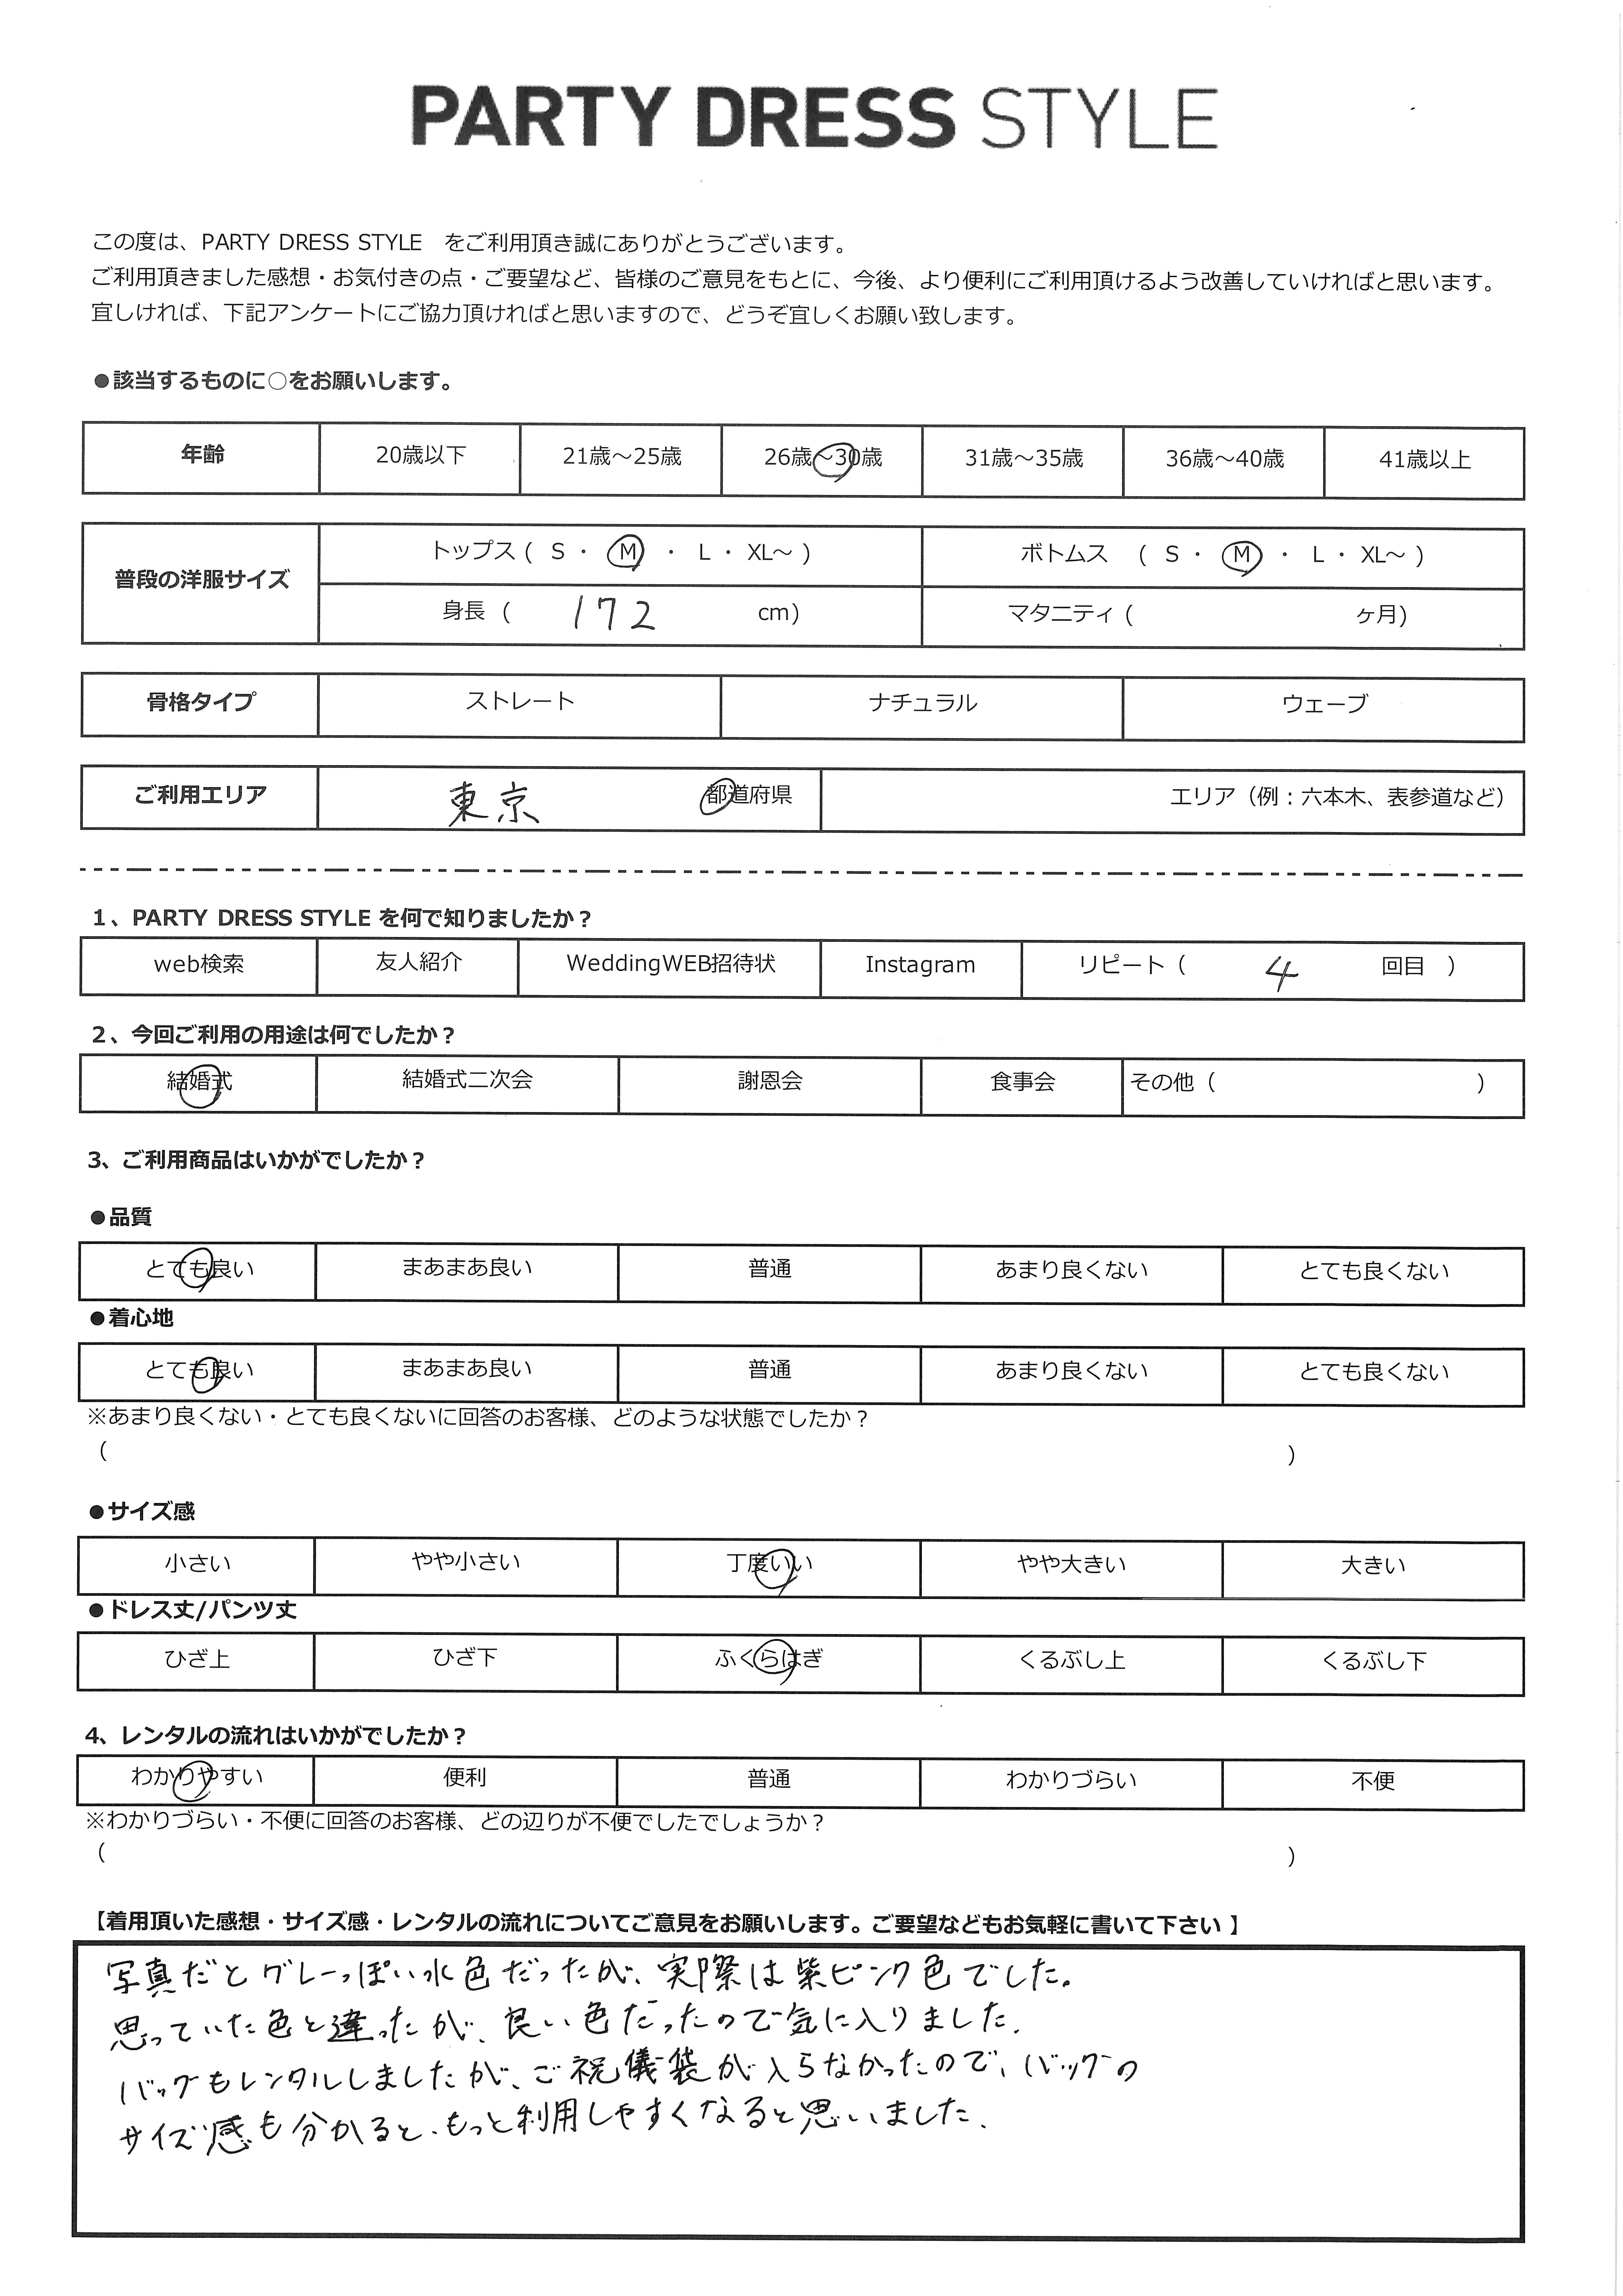 PARTY DRESS STYLE
この度は、PARTY DRESS STYLE　をご利用頂き誠にありがとうございます。
ご利用頂きました感想・お気付きの点・ご要望など、皆様のご意見をもとに、今後、より便利にご利用頂けるよう改善していければと思います。
宜しければ、下記アンケートにご協力頂ければと思いますので、どうぞ宜しくお願い致します。
●該当するものに○をお願いします。
年齢 20歳以下 21歳～25歳 26歳～30歳 31歳～35歳 36歳～40歳 41歳以上
普段の洋服サイズ トップス ( S ・ M ・ L ・ XL～ ) ボトムス ( S ・ M ・ L ・ XL～ )
身長 ( 172 cm) マタニティ ( ヶ月)
骨格タイプ ストレート ナチュラル ウェーブ
ご利用エリア 東京 都道府県 エリア（例：六本木、表参道など）
1、PARTY DRESS STYLE を何で知りましたか？
web検索 友人紹介 WeddingWEB招待状 Instagram リピート（ 4 回目 ）
2、今回ご利用の用途は何でしたか？
結婚式 結婚式二次会 謝恩会 食事会 その他（ ）
3、ご利用商品はいかがでしたか？
●品質
とても良い まあまあ良い 普通 あまり良くない とても良くない
●着心地
とても良い まあまあ良い 普通 あまり良くない とても良くない
※あまり良くない・とても良くないに回答のお客様、どのような状態でしたか？
（ ）
●サイズ感
小さい やや小さい 丁度いい やや大きい 大きい
●ドレス丈/パンツ丈
ひざ上 ひざ下 ふくらはぎ くるぶし上 くるぶし下
4、レンタルの流れはいかがでしたか？
わかりやすい 便利 普通 わかりづらい 不便
※わかりづらい・不便に回答のお客様、どの辺りが不便でしたでしょうか？
（ ）
【着用頂いた感想・サイズ感・レンタルの流れについてご意見をお願いします。ご要望などもお気軽に書いて下さい】
写真だとグレーっぽい水色だったが、実際は紫ピンク色でした。
思っていた色と違ったが、良い色だったので気に入りました。
バッグもレンタルしましたが、ご祝儀袋が入らなかったので、バッグの
サイズ感も分かると、もっと利用しやすくなると思いました。